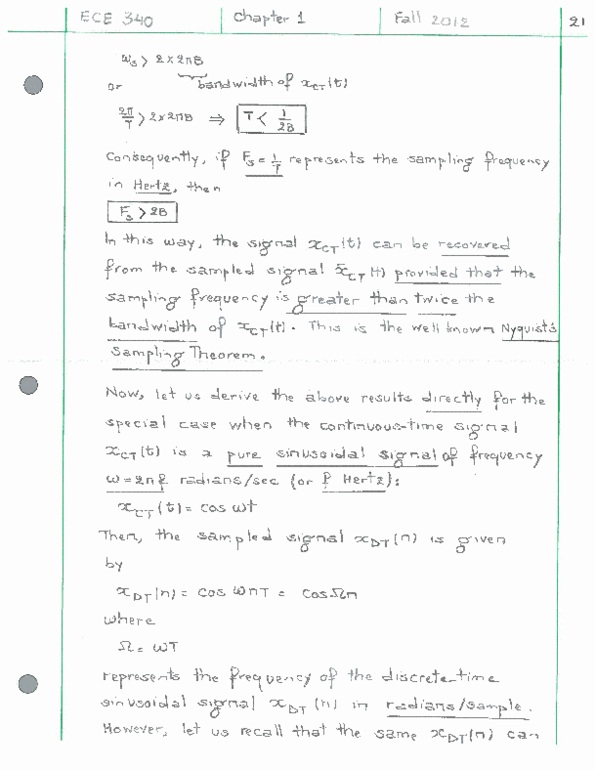 ECE 340 Chapter 1 Fall 2012 21
ωs > 2 x 2πB
or bandwidth of xCT(t)
2π/T > 2 x 2πB ⇒ T < 1/2B
Consequently, if Fs = 1/T represents the sampling frequency
in Hertz, then
Fs > 2B
In this way, the signal xCT(t) can be recovered
from the sampled signal x̄CT(t) provided that the
sampling frequency is greater than twice the
bandwidth of xCT(t). This is the well known Nyquist's
Sampling Theorem.
Now, let us derive the above results directly for the
special case when the continuous-time signal
xCT(t) is a pure sinusoidal signal of frequency
ω=2πf radians/sec (or f Hertz):
xCT(t) = cos ωt
Then, the sampled signal xDT(n) is given
by
xDT(n) = cos ωnT = cos Ωn
where
Ω = ωT
represents the frequency of the discrete-time
sinusoidal signal xDT(n) in radians/sample.
However, let us recall that the same xDT(n) can